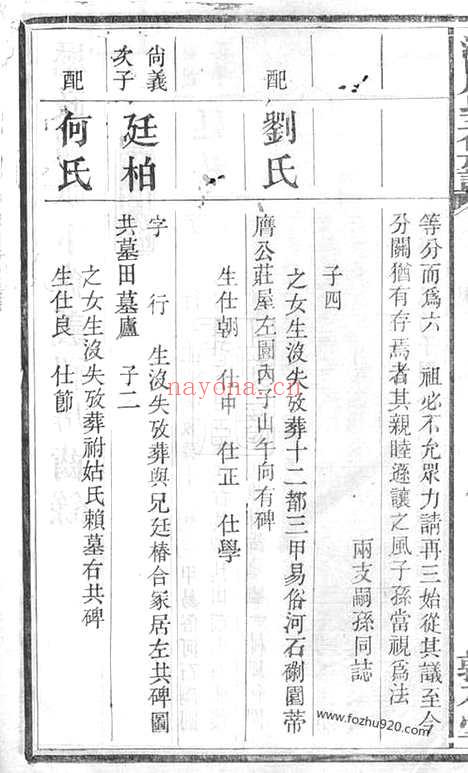 等分而爲六　祖必不允眾力請再三始從其議至今
分關猶有存焉者其親睦遜讓之風子孫當視爲法
兩支嗣孫同誌
子四
配　劉氏
之女生沒失攷葬十二都三甲易俗河石㘐圍蒂
膺公莊屋左園內子山午向有碑
生仕朝　仕中　仕正　仕學
尚義
次子　廷柏
字　行　生沒失攷葬與兄廷椿合冢居左共碑圖
共墓田墓廬　子二
配　何氏
之女生沒失攷葬祔姑氏賴墓右共碑
生仕良　仕節
nayona.cn
www.fozhu920.com